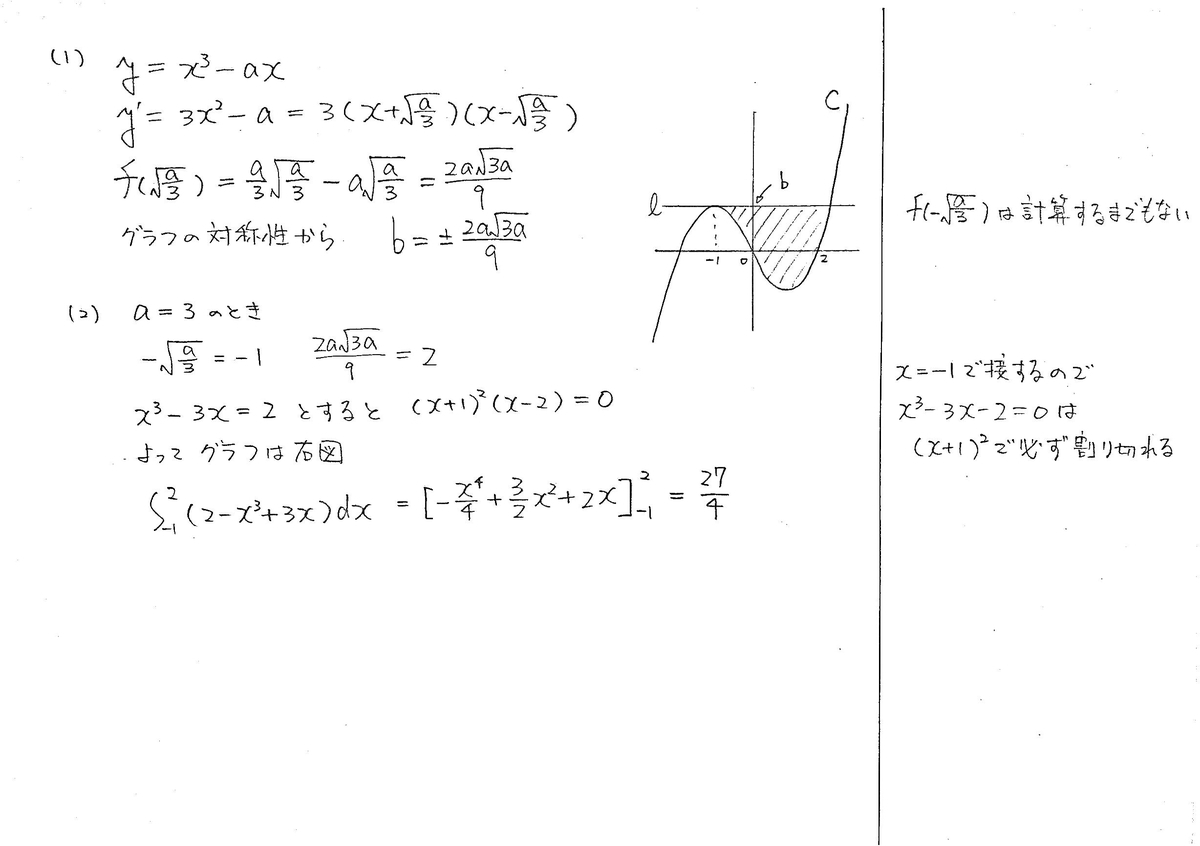 (1) y = x³ - ax
y' = 3x² - a = 3(x+√(a/3))(x-√(a/3))
f(√(a/3)) = a/3√(a/3) - a√(a/3) = 2a√3a/9
グラフの対称性から b = ± 2a√3a/9
C
b
l
-1 0 2
(2) a = 3 のとき
-√(a/3) = -1 2a√3a/9 = 2
x³ - 3x = 2 とすると (x+1)²(x-2) = 0
よって グラフは右図
∫₋₁² (2-x³+3x)dx = [-x⁴/4 + 3/2 x² + 2x]₋₁² = 27/4
f(-√(a/3)) は計算するまでもない
x = -1で接するので
x³-3x-2=0 は
(x+1)²で必ず割り切れる